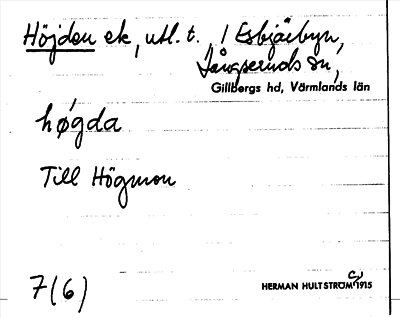 Höjden ek, utl. t. 1 Esbjörbyn,
Långseruds sn,
Gillbergs hd, Värmlands län
høgda
Till Högmon
7(6)
HERMAN HULTSTRÖM 1915